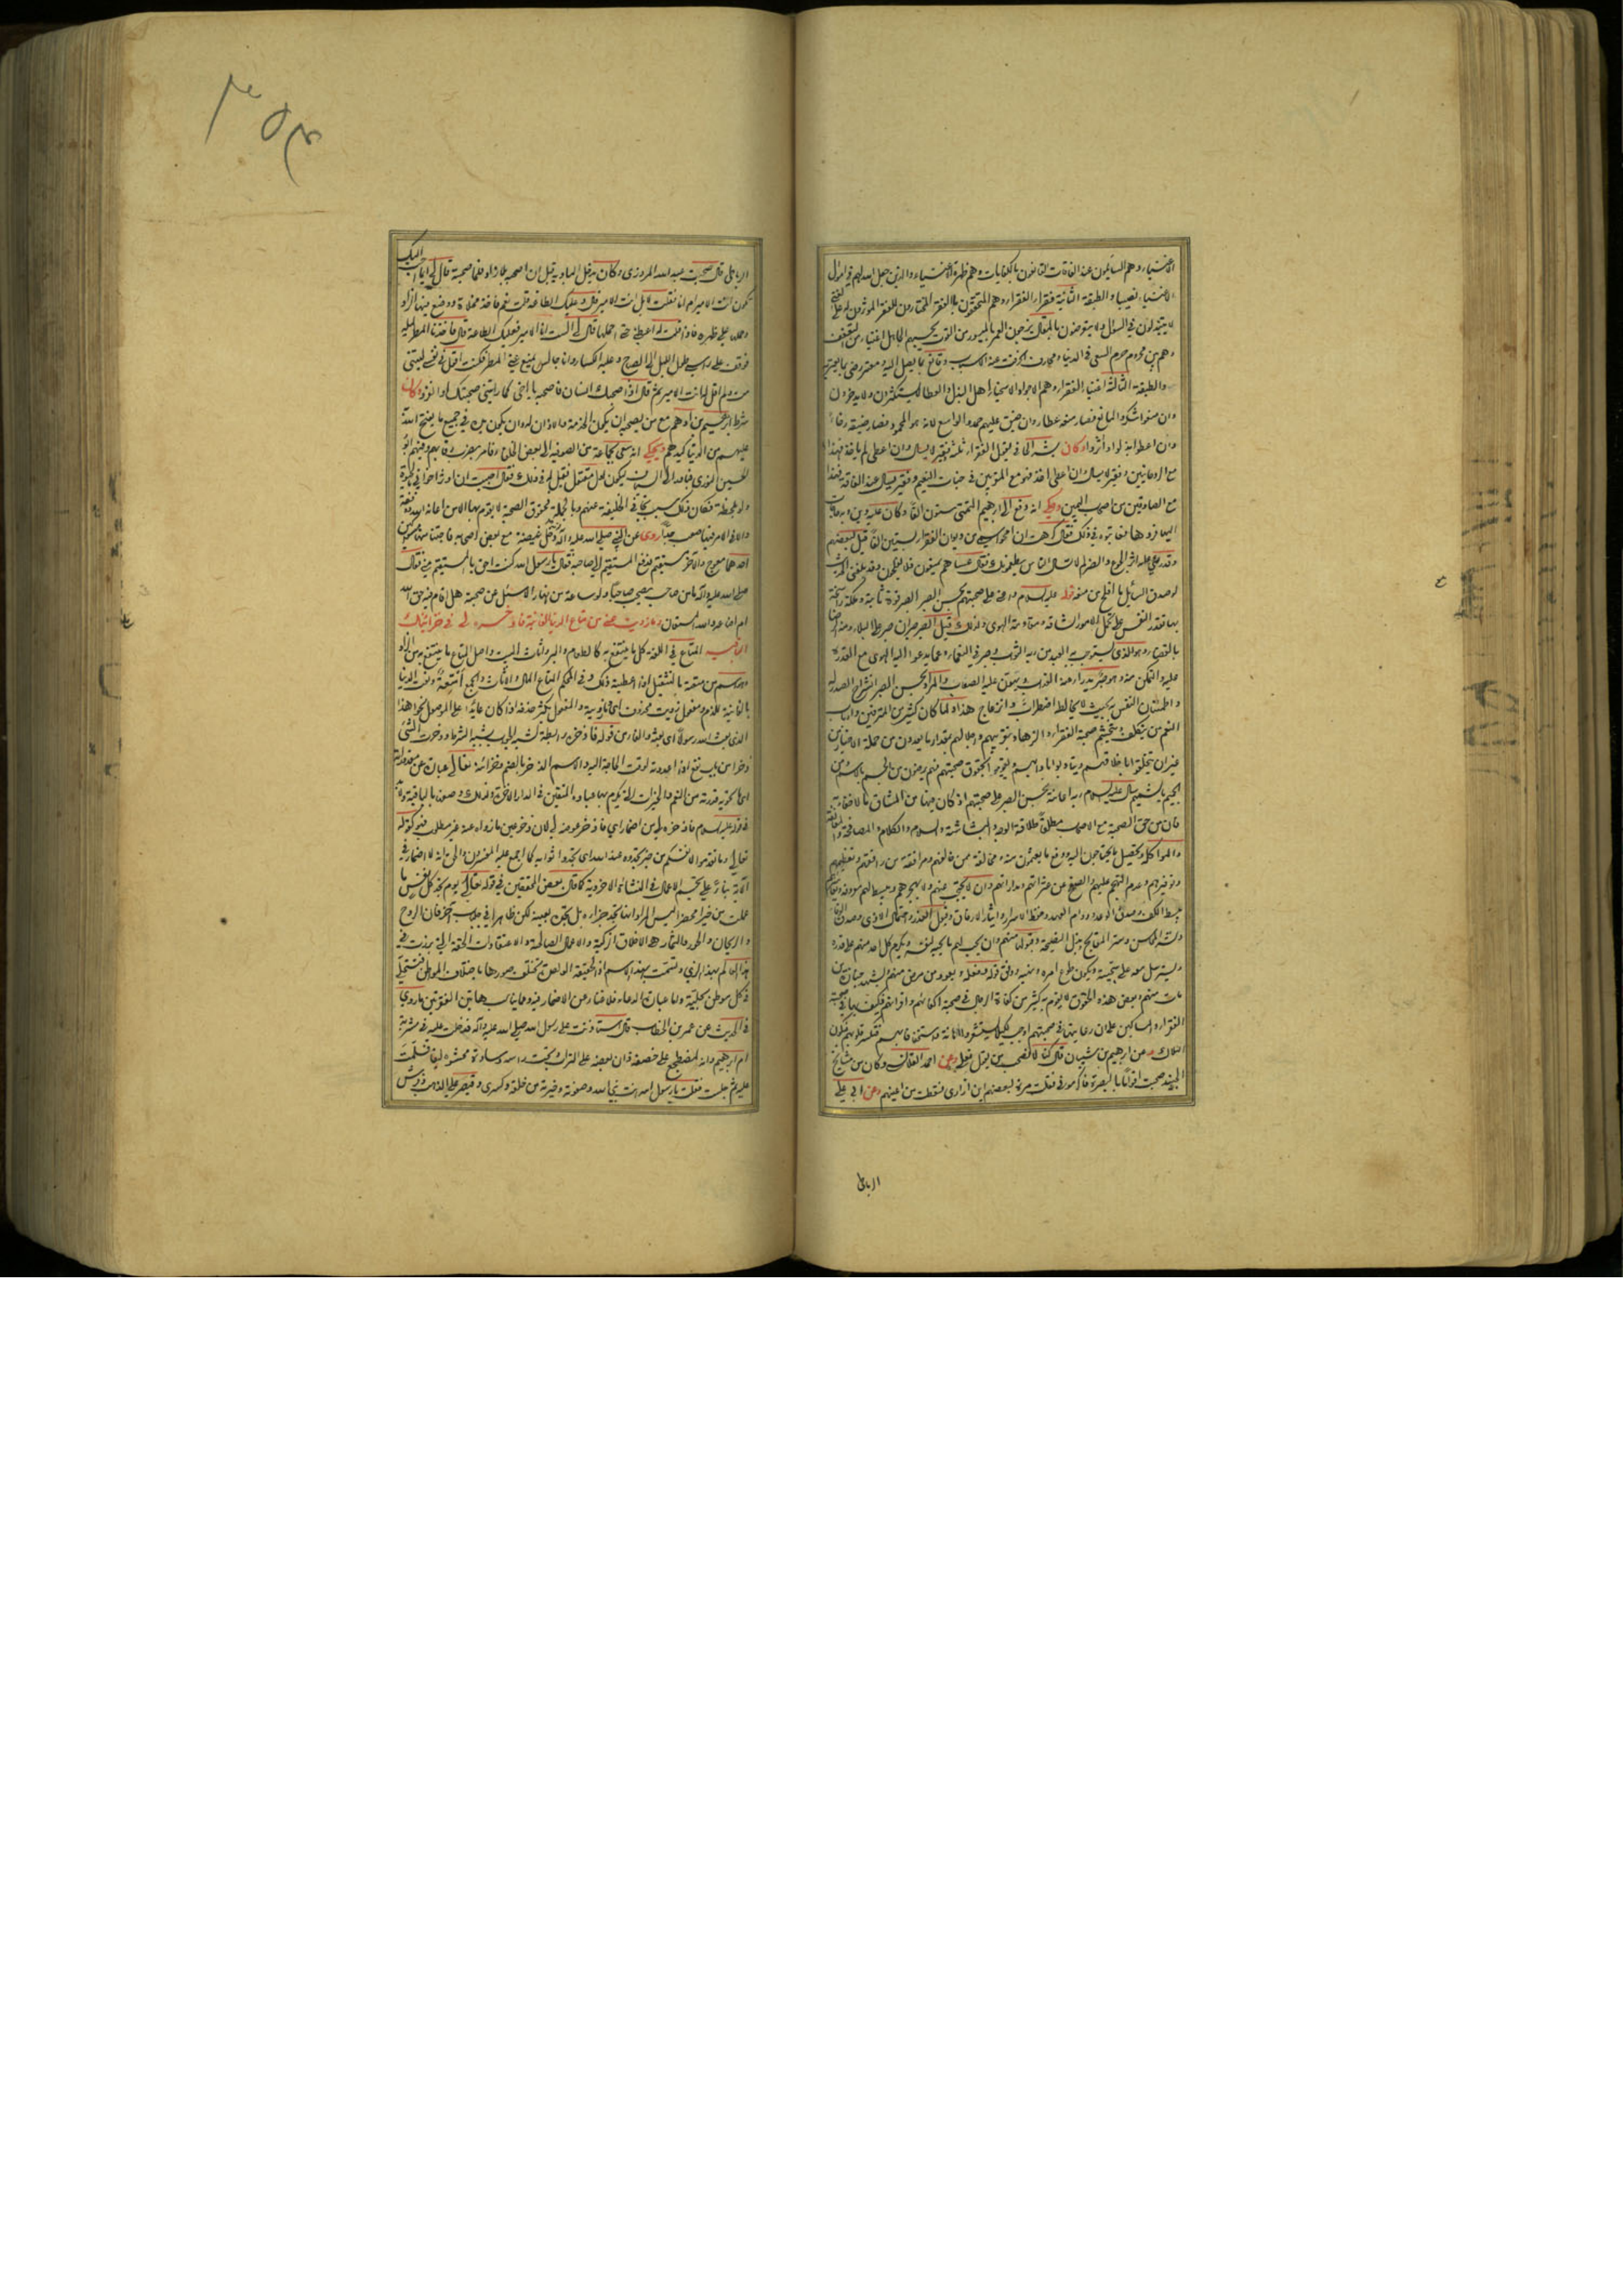 الاغنياء وهم السائلون عند الفاقات القانعون بالكفايات وهم ظهرة الاغنياء والذين جعل الله لهم في اموال
الاغنياء نصيبا والطبقة الثانية فقراء الفقراء وهم المتحققون بالفقر المختارون للفقر الموثرون له على الغنى
لا يتبذلون في السؤال ولا يتعرضون بالمقال يزجون العمر بالميسور من القوت يحسبهم الجاهل اغنياء من التعفف
وهم من محروم حرم السعي في الدنيا ومحارف انحرفت عنه المكاسب وقانع بما يصل اليه معترض
والطبقة الثالثة اغنياء الفقراء وهم الاجواد الاسخياء اهل البذل والعطا لا يستكثرون ولا يدخرون
وان منعوا شكروا المانع فصار منعه عطاء وان ضيق عليهم حمدوا الواسع لانه هو المحمود فصار ضيقه رخاء
وان اعطوا بذلوا وآثروا وكان بشر الحافي يقول الفقراء ثلثة فقير لا يسال وان اعطى لم ياخذ فهذا
مع الروحانيين وفقير لا يسال وان اعطي اخذ فهو مع المقربين في جنات النعيم وفقير يسال عند الفاقة فهذا
مع الصادقين من اصحاب اليمين وحكي انه دفع الى ابرهيم المتمني ستون الفا وكان عليه دين وبه حاجات
اليها فردها فعاتبوه في ذلك فقال كرهت ان امحو اسمي من ديوان الفقراء بستين الفا قيل لبعضهم
وقد رؤي عليه اثر الجوع والضر لم لا تسال الناس يطعمونك فقال اخشى اسالهم فيمنعون فلا يفلحون وقد بلغني الحديث
لو صدق السائل ما افلح من منعه قوله عليه السلام واعني على صحبتهم بحسن الصبر الصبر قوة ثابتة وملكة راسخة
بها تقدر النفس على تحمل الامور الشاقة ومقاومة الهوى ولذلك قيل الصبر صبران صبر على البلاء ومنه الرضا
بالقضاء وهو الذي يستوجب به العبد من ربه الثواب وصبر في النعماء وعما يدعو اليه الهوى مع القدرة
عليه والتمكن منه وهو صبر يدرأ عنه العذاب يهون عليه الصعاب والمراد بحسن الصبر انشراح الصدر له
واطمئنان النفس به بحيث لا يخالط اضطراب وانزعاج هذا ولما كان كثير من المترفين وارباب
النعم من يتكلف ويتجشم صحبة الفقراء والزهاد بتقريبهم واجلالهم بمقدار ما يعدون من جملة الاخيار من
غير ان يتخلقوا باخلاقهم ويتادبوا بادابهم ويقوموا بحقوق صحبتهم فهم يرضون من الجسم بالاسم ومن
الجيم بالشميم سال عليه السلام ربه اعانته بحسن الصبر على صحبتهم اذ كان فيها من المشاق ما لا خفاء به
فان من حق الصحبة مع الاصحاب مطلقا طلاقة الوجه والبشاشة والسلام والكلام والمصافحة والمعانقة
والمواكلة وتحصيل ما يحتاجون اليه ودفع ما يغمون منه ومخالفة من خالفهم ومرافقة من رافقهم وتعظيمهم
وتوقيرهم وعدم التهجم عليهم والصفح عن عثراتهم ومداراتهم وان لا يحتجب عنهم ولا يهجرهم
ببسط الكف وصدق الوعد ودوام العهد وحفظ الاسرار وايثار الارفاق وقبول العذر واحتمال الاذى وصدق الوفا
ونشر المحاسن وستر القبايح وبذل النصيحة وقبولها منهم وان يحب لهم ما يحبه لنفسه ويكرم كل احد منهم على قدره
ويسترسل معه على سجيته ويكون طوع امره ونهيه ووفق قوله وفعله ويعود من مرض منهم ويشهد جنازة من
مات منهم وبعض هذه الحقوق لا يقوم به كثير من كفاة الرجال في صحبة اكفائهم واقرانهم فكيف بها في صحبة
الفقراء والمساكين على ان رعايتها في صحبتهم اوجب لكيلا يستشعروا الاهانة والاستخفاف بهم فتنكسر قلوبهم فيكون
الهلاك وعن ابرهيم بن شيبان قال كنا لا نصحب من يقول نعلي وعن احمد القلانسي وكان من مشايخ
الجنيد صحبت اقواما بالبصرة فاكرموني فقلت مرة لبعضهم اين ازاري فسقطت من اعينهم وعن ابي علي
الرباطي
الرباطي قال صحبت عبد الله المروزي وكان يدخل البادية قبل ان اصحبه بلا زاد فلما صحبته قال لي ايما احب اليك
تكون انت الامير ام انا فقلت لا بل انت الامير فقال وعليك الطاعة قلت نعم فاخذ مخلاة ووضع فيها زادا
وحملها على ظهره فاذا قلت له اعطني حتى احملها قال لي الست انا الامير فعليك الطاعة قال فاخذنا المطر ليلة
فوقف على راسي طول الليل الى الصباح وعليه الكساء وانا جالس يمنع عني المطر فكنت اقول في نفسي ليتني
مت ولم اقل له انت الامير ثم قال اذا صحبك انسان فاصحبه يا اخي كما رايتني صحبتك والله الموفق وكان
شرط ابرهيم بن ادهم مع من يصحبه ان يكون الخدمة والاذان له وان يكون يده في جميع ما يفتح الله
عليهم من الدنيا كيدهم وحكي انه سعى بجماعة من الصوفية الى بعض الخلفاء فامر بضرب رقابهم وفيهم ابو
الحسين النوري فبادر الى السياف ليكون اول مقتول فقيل له في ذلك فقال احببت ان اوثر اخواني بالحيوة
ولو لحظة فكان ذلك سبب نجاته وعفى الخليفة عنهم وبالجملة فحقوق الصحبة لا يقوم بها الا من اعانه الله ووفقه
والا فالامر فيها صعب جدا روي عن النبي صلى الله عليه وآله دخل غيضة مع بعض اصحابه فاجتنا منها سواكين
احدهما معوج والاخر مستقيم فدفع المستقيم الى صاحبه فقال يا رسول الله كنت احق بالمستقيم مني فقال
صلى الله عليه وآله ما من صاحب يصحب صاحبا ولو ساعة من نهار الا سئل عن صحبته هل اقام فيه حق الله
ام اضاعه والله المستعان وما زويت عني من متاع الدنيا الفانية فاذخره لي في خزائنك
الباقية المتاع في اللغة كل ما ينتفع به كالطعام والبز واثاث البيت واصل المتاع ما يتبلغ به من الزاد
وهو اسم من متعته بالتثقيل اذا اعطيته ذلك وفي المحكم المتاع المال والاثاث والجمع امتعة ونعت الدنيا
بالفانية للذم ومفعول زويت محذوف اي ما زويته والمفعول يكثر حذفه اذا كان عايدا على الموصول نحو اهذا
الذي بعث الله رسولا اي بعثه والفاء من قوله فاذخره رابطة لشبه الجواب بشبه الشرط وذخرت الشيء
ذخرا من باب نفع اذا اعددته لوقت الحاجة اليه والاسم الذخر بالضم وخزائنه تعالى عبارة عن مقدوراته
اي ما تحويه قدرته من النعم والخيرات التي يكرم بها عباده المتقين في الدار الاخرة ولذلك وصفت بالباقية
في قوله عليه السلام فاذخره لي من اضمار اي فاذخر عوضه لي لان ذخر عين ما زواه عنه غير مطلوب فهو كقوله
تعالى وما تقدموا لانفسكم من خير تجدوه عند الله اي تجدوا ثوابه كما اجمع عليه المفسرون والحق انه لا اضمار في
الآية بناء على تجسم الاعمال في النشاة الاخروية كما قال بعض المحققين في قوله تعالى يوم تجد كل نفس ما
عملت من خير محضرا ليس المراد انها تجد جزاءه بل تجده بعينه لكن ظاهرا في جلباب آخر فان الروح
والريحان والحور والثمار هي الاخلاق الزكية والاعمال الصالحة والاعتقادات الحقة التي برزت في
هذا العالم بهذا الزي وتسمت بهذا الاسم اذ الحقيقة الواحدة تختلف صورها باختلاف المواطن فتتحلى
في كل موطن بحلية واما عبارة الدعاء فلا فتار عن الاضمار فيه ومما يناسب هاتين الفقرتين ما روي
في الحديث عن عمر بن الخطاب قال استاذنت على رسول الله صلى الله عليه وآله فدخلت عليه في مشربة
ام ابرهيم وانه لمضطجع على خصفة وان بعضه على التراب وتحت راسه وسادة محشوة ليفا فسلمت
عليه ثم جلست فقلت يا رسول الله انت نبي الله وصفوته وخيرته من خلقه وكسرى وقيصر على الذهب وفرش